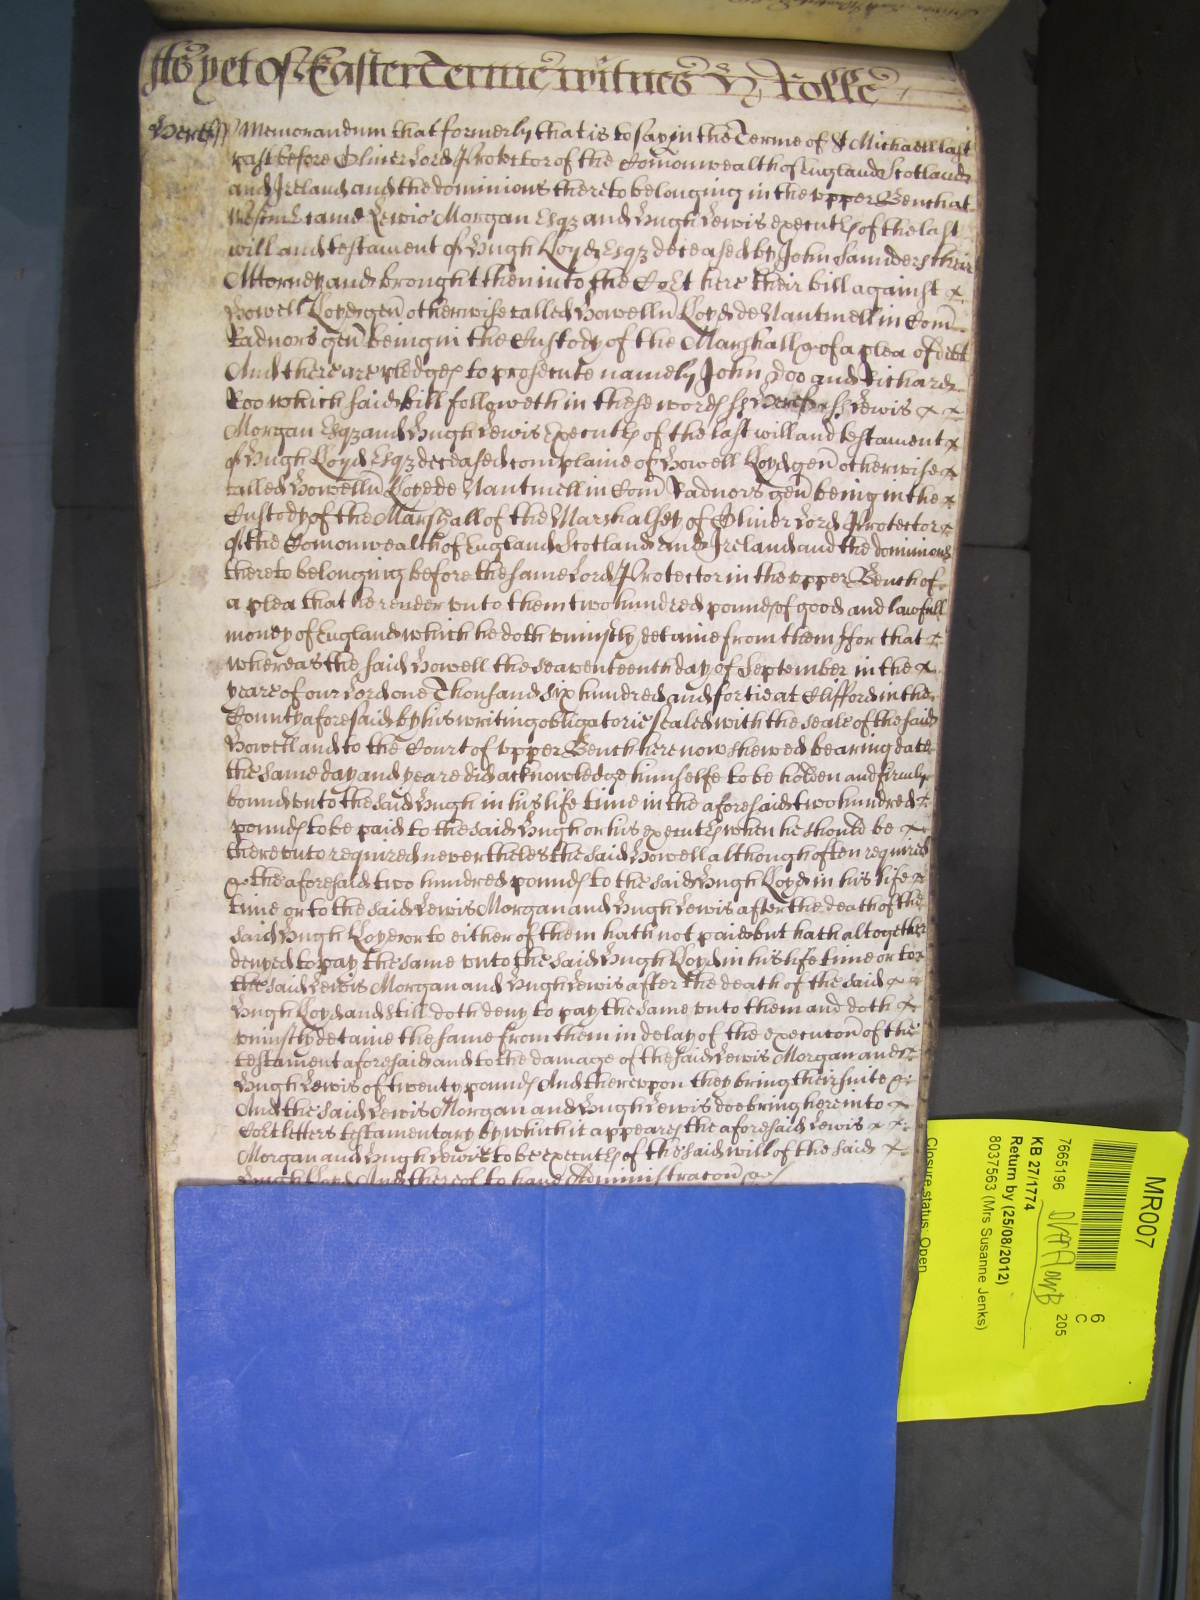 As yet of Easter Terme witnes H Rolle
Hereff Memorandum that formerly that is to say in the Terme of St Michaell last
past before Oliver Lord Protector of the Comonwealth of England Scotland
and Ireland and the dominions thereto belonging in the upper Bench at
Westmr came Lewis Morgan Esqz and Hugh Lewis executrs of the last
will and testament of Hugh Loyd Esqz deceased by John Saunders their
Attorney and brought then into the Cort here their bill against x
Howell Loyd gen otherwise called Howell Loyd de Nantmell in Com
Radnor gen being in the Custody of the Marshall &c of a plea of debt
And there are pledges to prosecute namely John Doo and Richard
Roo which said bill followeth in these words ss Hereff ss Lewis x x
Morgan Esqz and Hugh Lewis Executrs of the last will and testament x
of Hugh Loyd Esqz deceased complaine of Howell Loyd gen otherwise x
called Howell Loyd de Nantmell in Com Radnor gen being in the x
Custody of the Marshall of the Marshalsey of Oliver Lord Protector x
of the Comonwealth of England Scotland and Ireland and the dominions
thereto belonging before the same Lord Protector in the upper Bench of
a plea that he render unto them two hundred pounds of good and lawfull
money of England which he doth uniustly detaine from them ffor that x
whereas the said Howell the seaventeenth day of September in the x
yeare of our Lord one Thousand six hundred and fortie at Clifford in the
County aforesaid by his writing obligatorie sealed with the seale of the said
Howell and to the Court of upper Bench here now shewed bearing date
the same day and yeare did acknowledge himselfe to be holden and firmly
bound unto the said Hugh in his life time in the aforesaid two hundred x
pounds to be paid to the said Hugh or his executrs when he should be x
thereunto required nevertheles the said Howell although often required
&c the aforesaid two hundred pounds to the said Hugh Loyd in his life x
time or to the said Lewis Morgan and Hugh Lewis after the death of the
said Hugh Loyd or to either of them hath not paid but hath altogether
denyed to pay the same unto the said Hugh Loyd in his life time or to x
the said Lewis Morgan and Hugh Lewis after the death of the said x
Hugh Loyd and still doth deny to pay the same unto them and doth x
uniustly detaine the same from them in delay of the execucon of the
testament aforesaid and to the damage of the said Lewis Morgan and
Hugh Lewis of twenty pounds And thereupon they bring their suite &c
And the said Lewis Morgan and Hugh Lewis doe bring here into x
Cort letters testamentary by which it appeares the aforesaid Lewis x x
Morgan and Hugh Lewis to be executrs of the said will of the said x
Hugh Loyd And thereof to have Administracon &c
MR007
6
C
205
7665196
KB 27/1774
Return by (25/08/2012)
8037563 (Mrs Susanne Jenks)
Closure status: Open